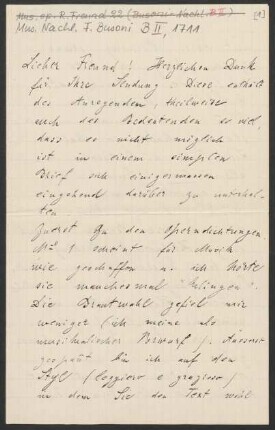 Mus. ep. R. Freund 22 (Busoni-Nachl. B II)
Mus. Nachl. F. Busoni B II, 1711
[1]
Lieber Freund! Herzlichen Dank
für Ihre Sendung. Diese enthält
des Anregenden, theilweise
auch des Bedeutenden so viel,
dass es nicht möglich
ist in einem simplen
Brief sich einigermassen
eingehend darüber zu unterhal-
ten.
Zuerst zu den Operndichtungen
No 1 scheint für Musik
wie geschaffen u. ich hörte
sie manchesmal "klingen".
Die Brautwahl gefiel mir
weniger (ich meine als
musikalischer Vorwurf). Äusserst
gespannt bin ich auf den
Styl (leggiero e grazioso)
in dem Sie den Text wohl